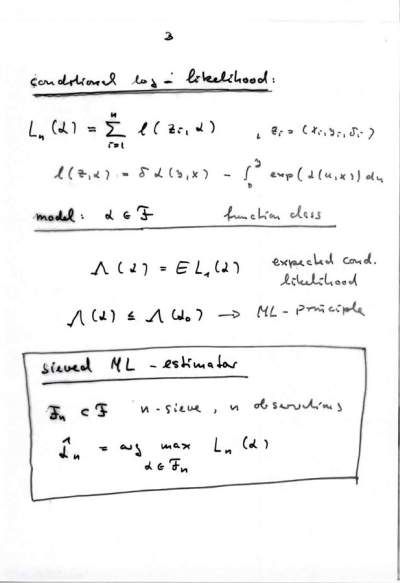 3
conditional log-likelihood:
L_n(α) = Σ_{i=1}^{n} l(z_i, α) , z_i = (x_i, y_i, δ_i)
l(z,α) = δ α(y,x) - ∫_0^y exp(α(u,x)) du
model: α ∈ F function class
Λ(α) = E L_1(α) expected cond.
likelihood
Λ(α) ≤ Λ(α_0) → ML-principle
sieved ML-estimator
F_n ⊂ F n-sieve, n observations
α̂_n = arg max L_n(α)
α ∈ F_n